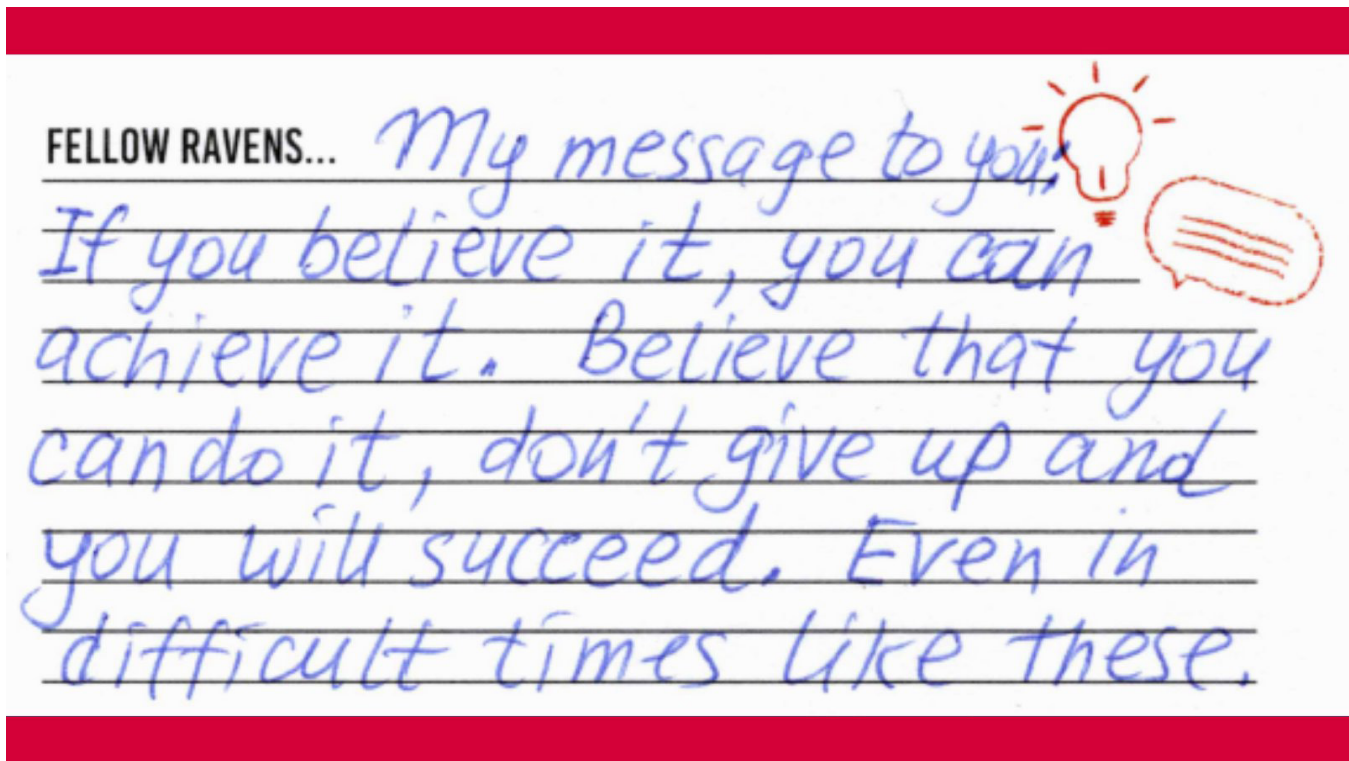 FELLOW RAVENS... My message to you:
If you believe it, you can
achieve it. Believe that you
can do it, don't give up and
you will succeed. Even in
difficult times like these.